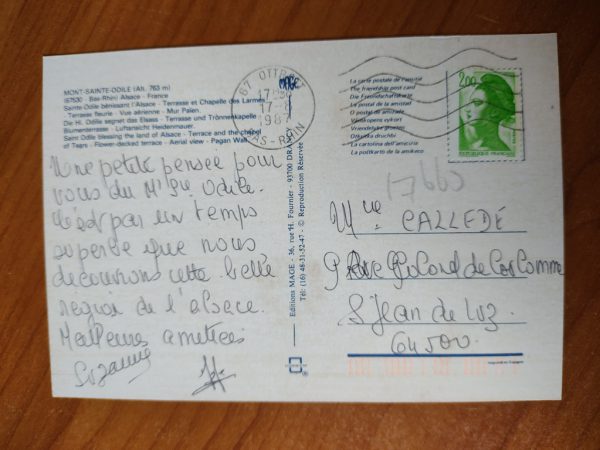 MONT-SAINTE-ODILE (Alt. 763 m)
(67530) Bas-Rhin) Alsace - France
Sainte Odile bénissant l'Alsace - Terrasse et Chapelle des Larmes
- Terrasse fleurie - Vue aérienne - Mur Païen.
De Hl. Odile segnet das Elsass - Terrasse und Trönnenkapelle
Blumenterrasse - Luftansicht Heidenmauer.
Saint Odile blessing the land of Alsace - Terrace and the chapel
of Tears - Flower-decked terrace - Aerial view - Pagan Wall.
Une petite pensée pour
vous du Mt Ste Odile.
C'est par un temps
superbe que nous
découvrons cette belle
région de l'alsace.
Meilleures amitiés
Suzanne
Editions MAGE - 36, rue H. Fournier - 93700 DRANCY
Tél: (16) 48-31-52-47 - © Reproduction Réservée
67 OTTROTT
17-
1987
BAS-RHIN
MAGE
La carte postale de l'amitié
The friendship post card
Die Freundschaftskarte
La postal de la amistad
O postal da amizade
Vriendelijke groeten
La cartolina dell'amicizia
La postkarto de la amikeco
2,00
REPUBLIQUE FRANÇAISE
17660
Mme CALLEDE
St Jean de Luz
64500